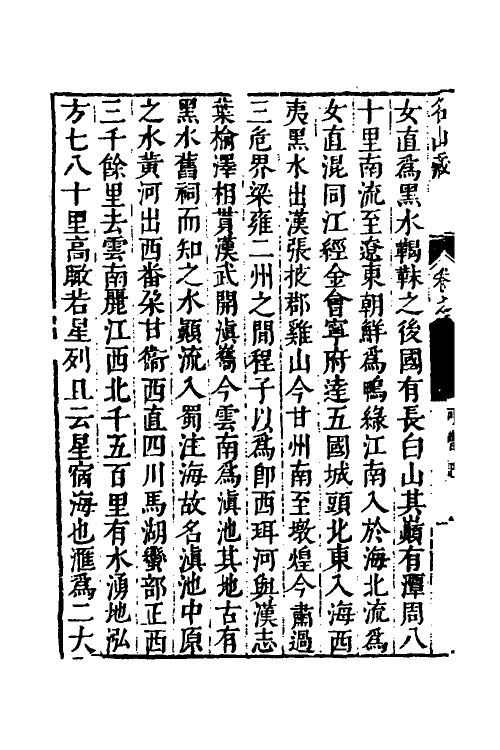 名山藏
卷之
女直爲黑水鞨靺之後國有長白山其巔有潭周八
十里南流至遼東朝鮮爲鴨綠江南入於海北流爲
女直混同江經金會寧府達五國城頭北東入海西
夷黑水出漢張掖郡雞山今甘州南至墩煌今肅過
三危界梁雍二州之間程子以爲即西珥河與漢志
葉榆澤相貫漢武開滇嶲今雲南爲滇池其地古有
黑水舊祠而知之水顚流入蜀注海故名滇池中原
之水黃河出西番朶甘衞西直四川馬湖蠻部正西
三千餘里去雲南麗江西北千五百里有水湧地泓
方七八十里高瞰若星列且云星宿海也滙爲二大